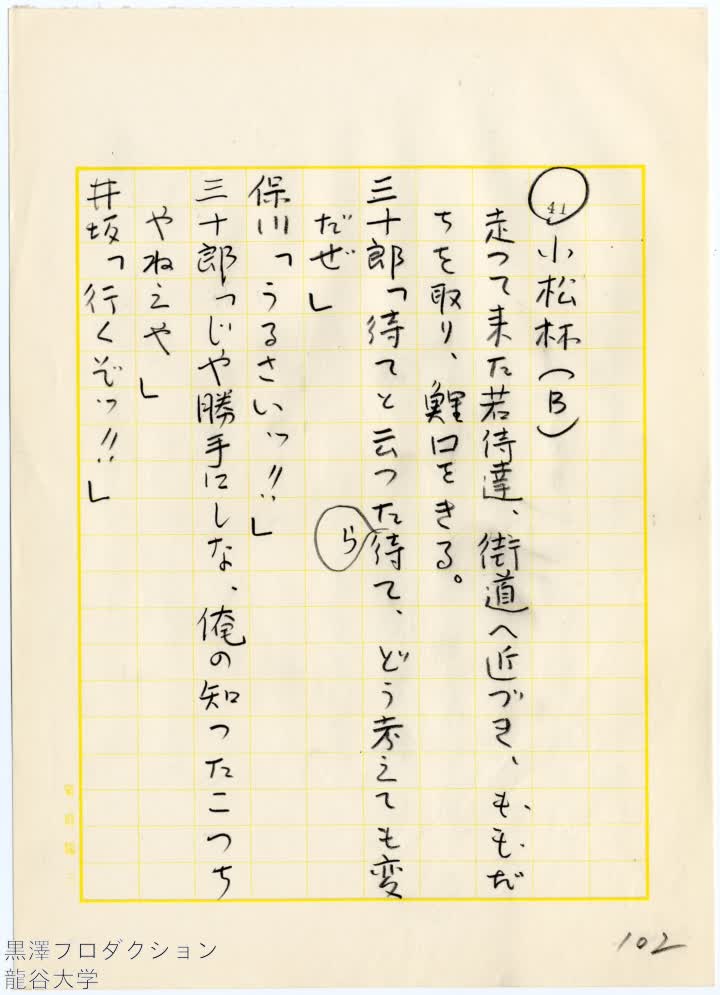 41 小松杯(B)
走つて来た若侍達、街道へ近づき、もゝもだ
ちを取り、鯉口をきる。
三十郎「待てと云つたら待て、どう考えても変
だぜ」
保川「うるさいッ!!」
三十郎「じや勝手にしな、俺の知つたこつち
やねえや」
井坂「行くぞッ!!」
102
黒澤プロダクション
龍谷大学